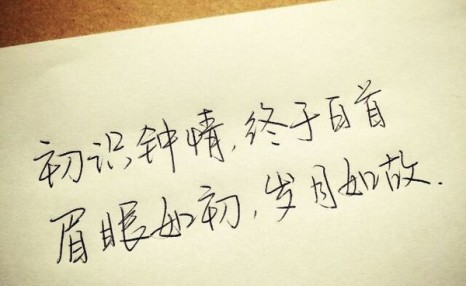 初识钟情，终于百首
眉眼如初，岁月如故.